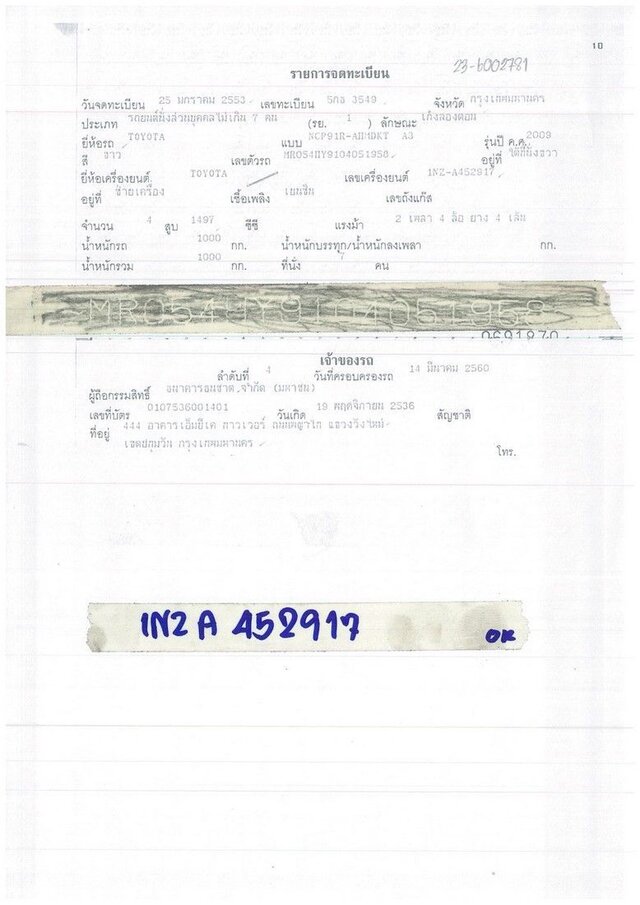 10
รายการจดทะเบียน
23-6002781
วันจดทะเบียน 25 มกราคม 2553 เลขทะเบียน 5กธ 3549 จังหวัด กรุงเทพมหานคร
ประเภท รถยนต์นั่งส่วนบุคคลไม่เกิน 7 คน (รย. 1 ) ลักษณะ เก๋งสองตอน
ยี่ห้อรถ TOYOTA แบบ NCP91R-AHMDKT A3 รุ่นปี ค.ศ. 2009
สี ขาว เลขตัวรถ MR054HY9104051958 อยู่ที่ ใต้ที่นั่งขวา
ยี่ห้อเครื่องยนต์ TOYOTA เลขเครื่องยนต์ 1NZ-A452917
อยู่ที่ ซ้ายเครื่อง เชื้อเพลิง เบนซิน เลขถังแก๊ส
จำนวน 4 สูบ 1497 ซีซี แรงม้า 2 เพลา 4 ล้อ ยาง 4 เส้น
น้ำหนักรถ 1000 กก. น้ำหนักบรรทุก/น้ำหนักลงเพลา กก.
น้ำหนักรวม 1000 กก. ที่นั่ง 7 คน
MR054HY9104051958
0691870
เจ้าของรถ
ลำดับที่ 4 วันที่ครอบครองรถ 14 มีนาคม 2560
ผู้ถือกรรมสิทธิ์ ธนาคารธนชาต จำกัด (มหาชน)
เลขที่บัตร 0107536001401 วันเกิด 19 พฤศจิกายน 2536 สัญชาติ
ที่อยู่ 444 อาคารเอ็มบีเค ทาวเวอร์ ถนนพญาไท แขวงวังใหม่
เขตปทุมวัน กรุงเทพมหานคร
โทร.
1NZ A 452917
OK